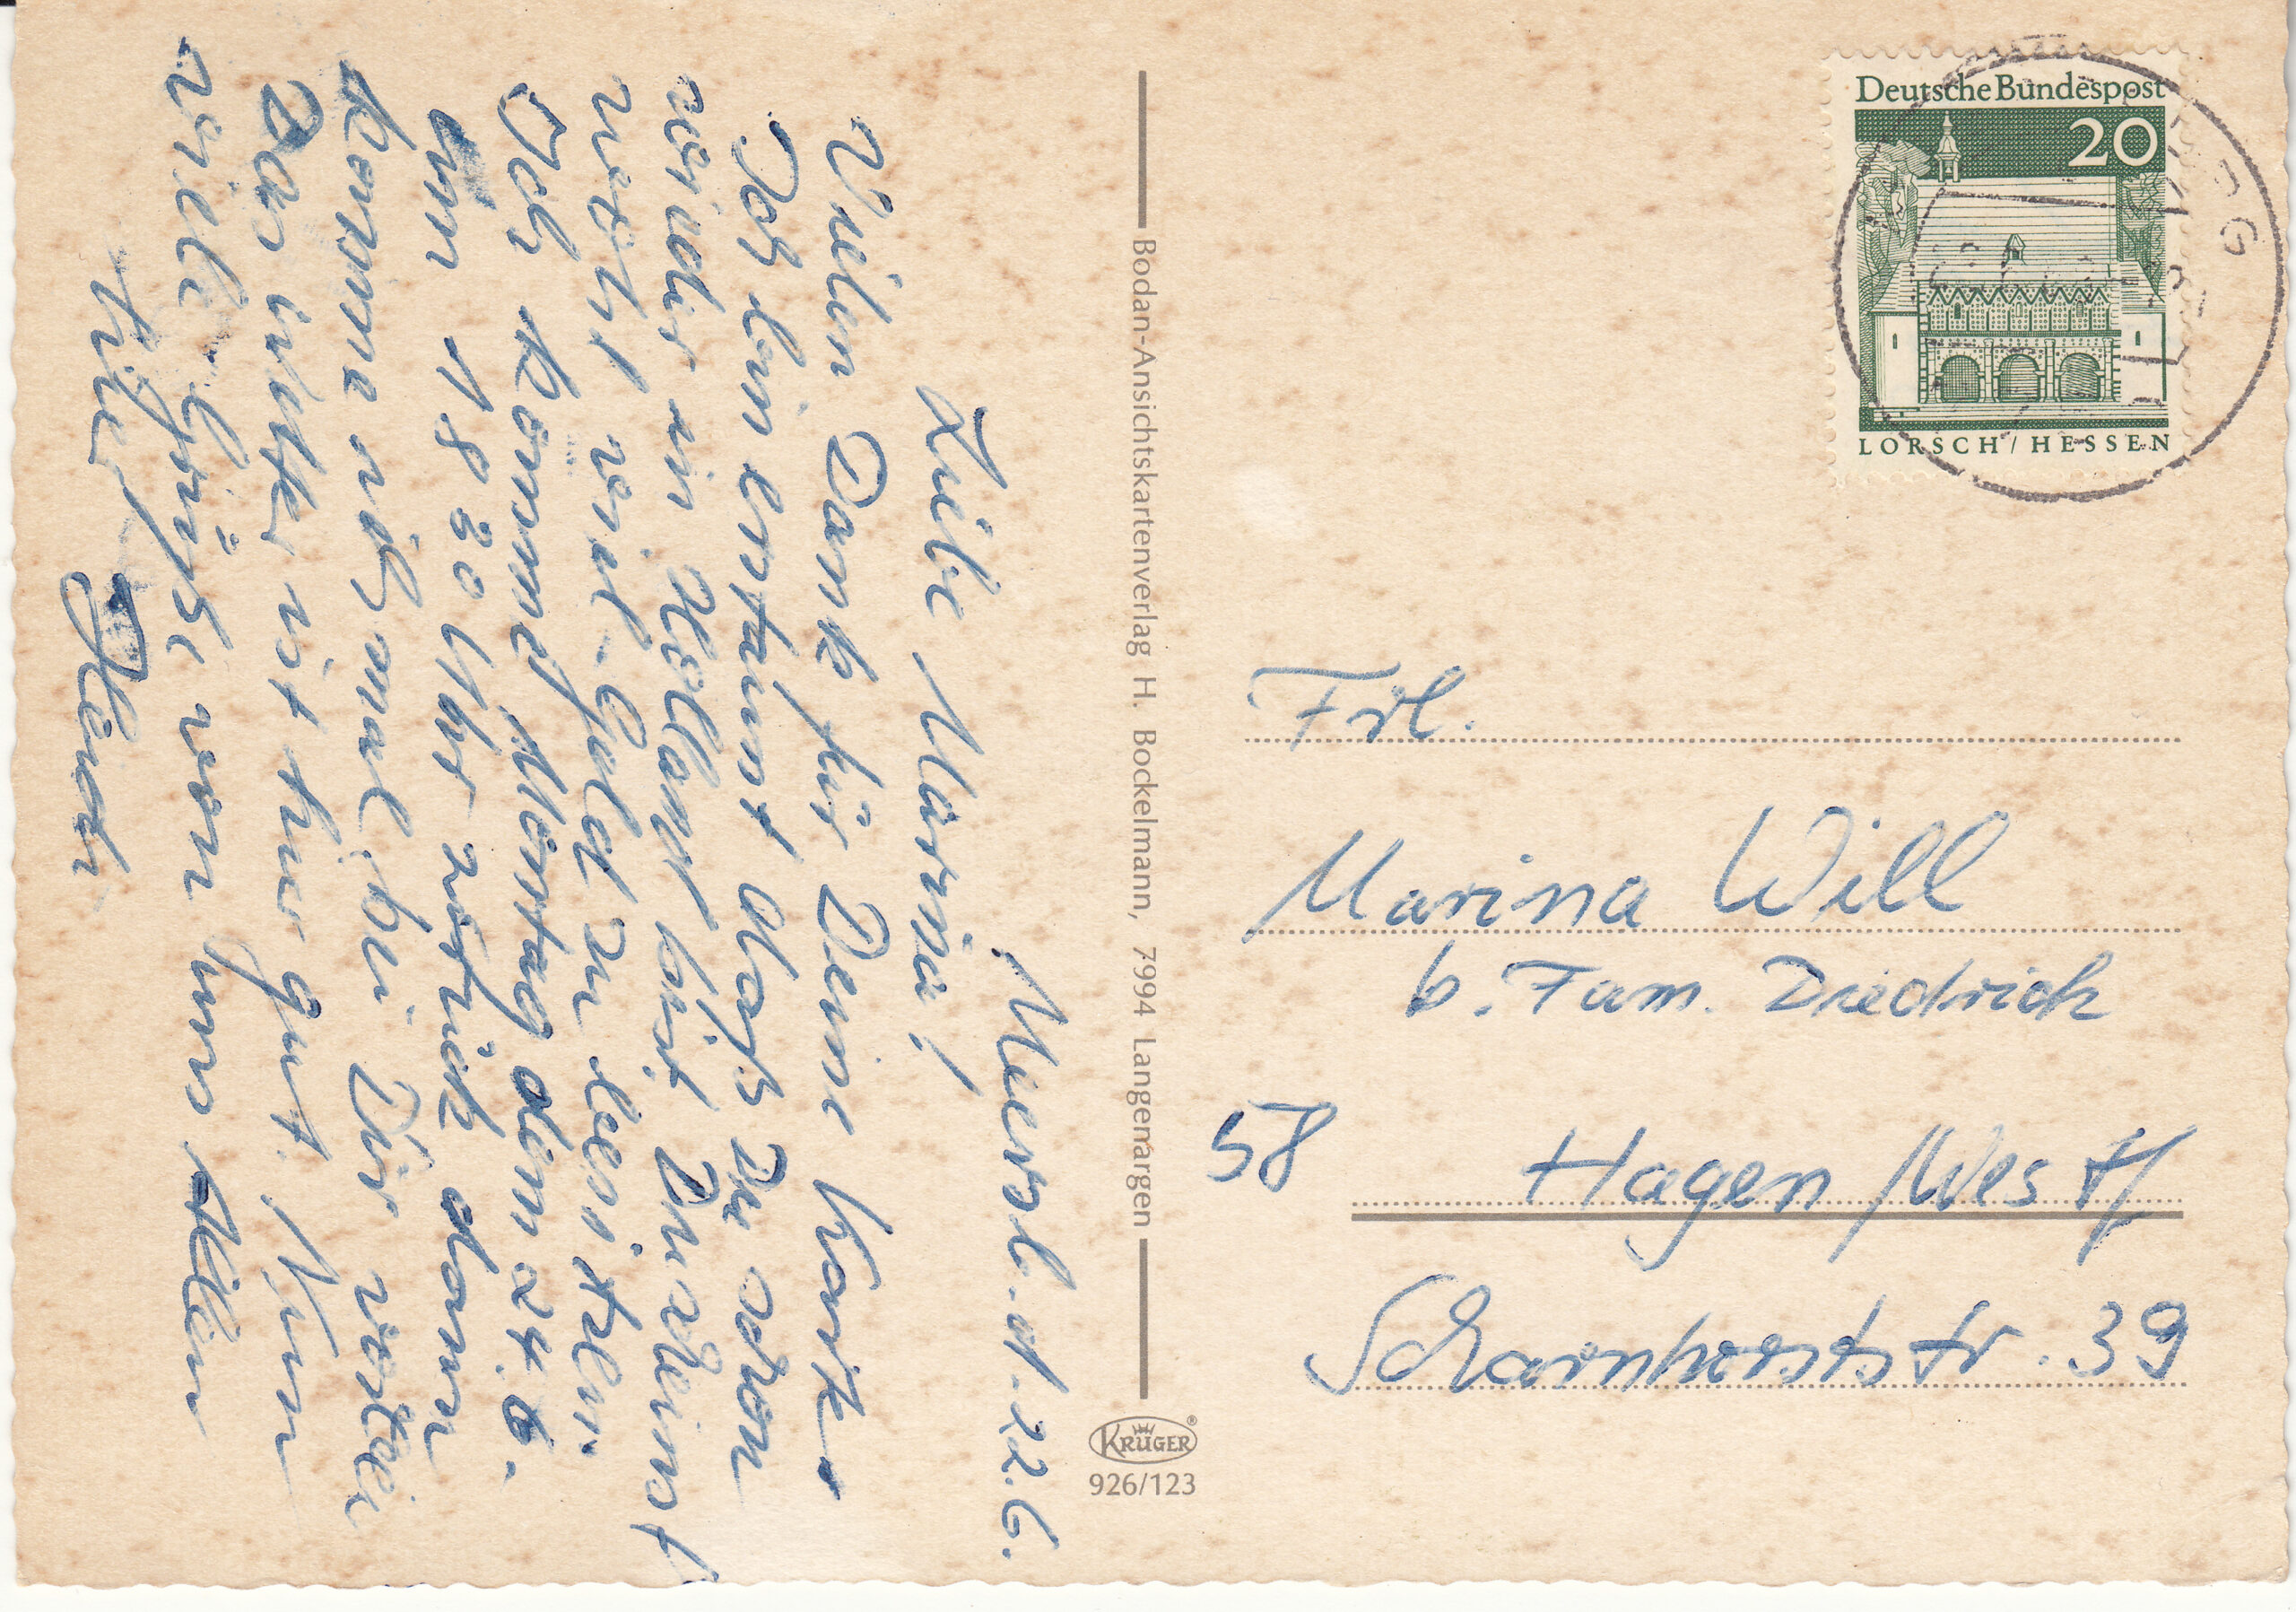 Meersb. d. 22.6.
Liebe Marina!
Vielen Dank für Deine Karte
Ich bin erstaunt daß Du schon
wieder in Holland bist. Du scheinst
wohl viel Geld zu besitzen.
Ich komme Montag dem 24.6.
um 18 30 Uhr zurück dann
komme ich mal bei Dir vorbei
Das Wetter ist hier gut. Nun
viele Grüße von uns Allen
hier
Deutsche Bundespost
20
LORSCH / HESSEN
Bodan-Ansichtskartenverlag H. Bockelmann, 7994 Langenargen
Frl.
Marina Will
b. Fam. Diedrich
58 Hagen/Westf
Scharnhorststr. 39
KRÜGER
926/123